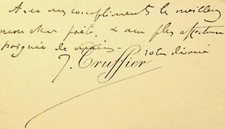 Avec mes compliments les meilleurs
mon cher poète, & ma plus affectueuse
poignée de mains. votre dévoué
J. Truffier